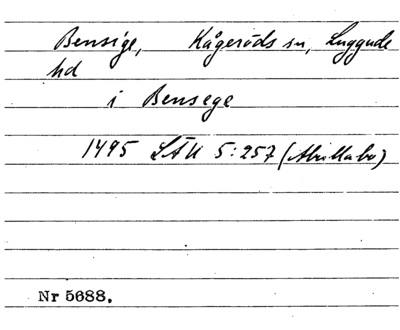 Bensige, Kågeröds sn, Luggude
hd
i Bensege
1495 LÄU 5:257 (
Nr 5688.